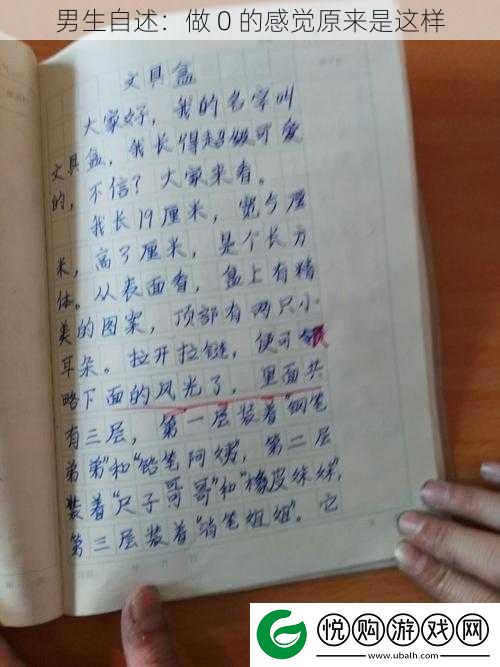 男生自述：做 0 的感觉原来是这样
文具盒
大家好，我的名字叫
文具盒，我长得超级可爱
的，不信？大家来看。
我长19厘米，宽5厘
米，高3厘米，是个长方
体。从表面看，盒上有精
美的图案，顶部有两只小
耳朵。拉开拉链，便可领
略下面的风光了，里面共
有三层，第一层装着“钢笔
弟弟”和“铅笔阿姨”，第二层
装着“尺子哥哥”和“橡皮妹妹”，
第三层装着“消笔姐姐”。它
悦购游戏网
www.ubalh.com